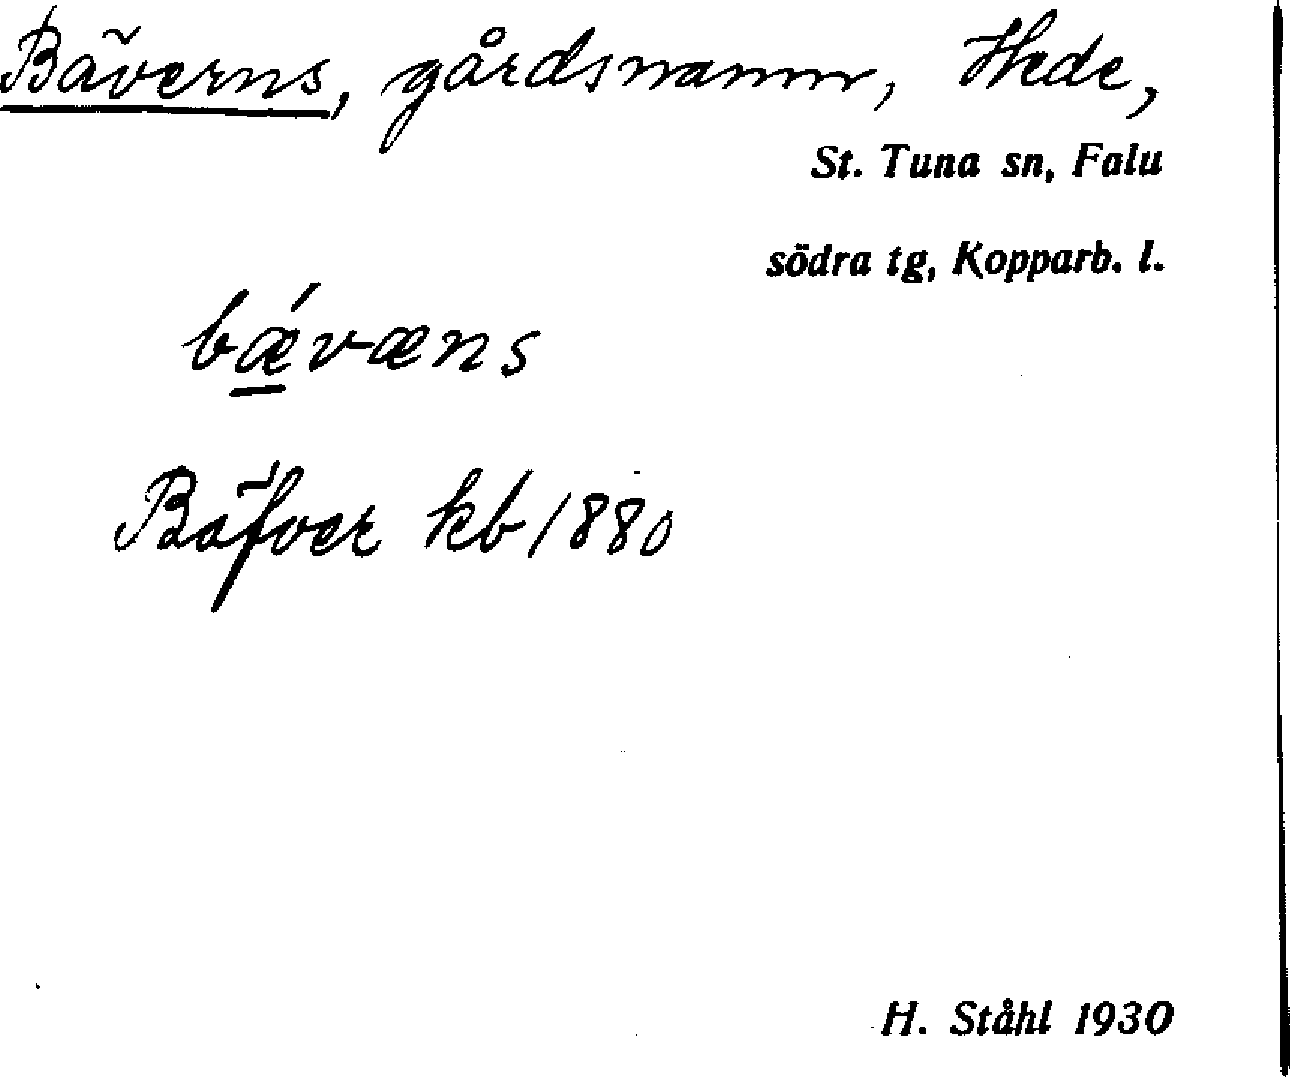 Bäverns, gårdsnamn, Hede,
St. Tuna sn, Falu
södra tg, Kopparb. l.
bǽvæns
Bäfver kb 1880
H. Ståhl 1930